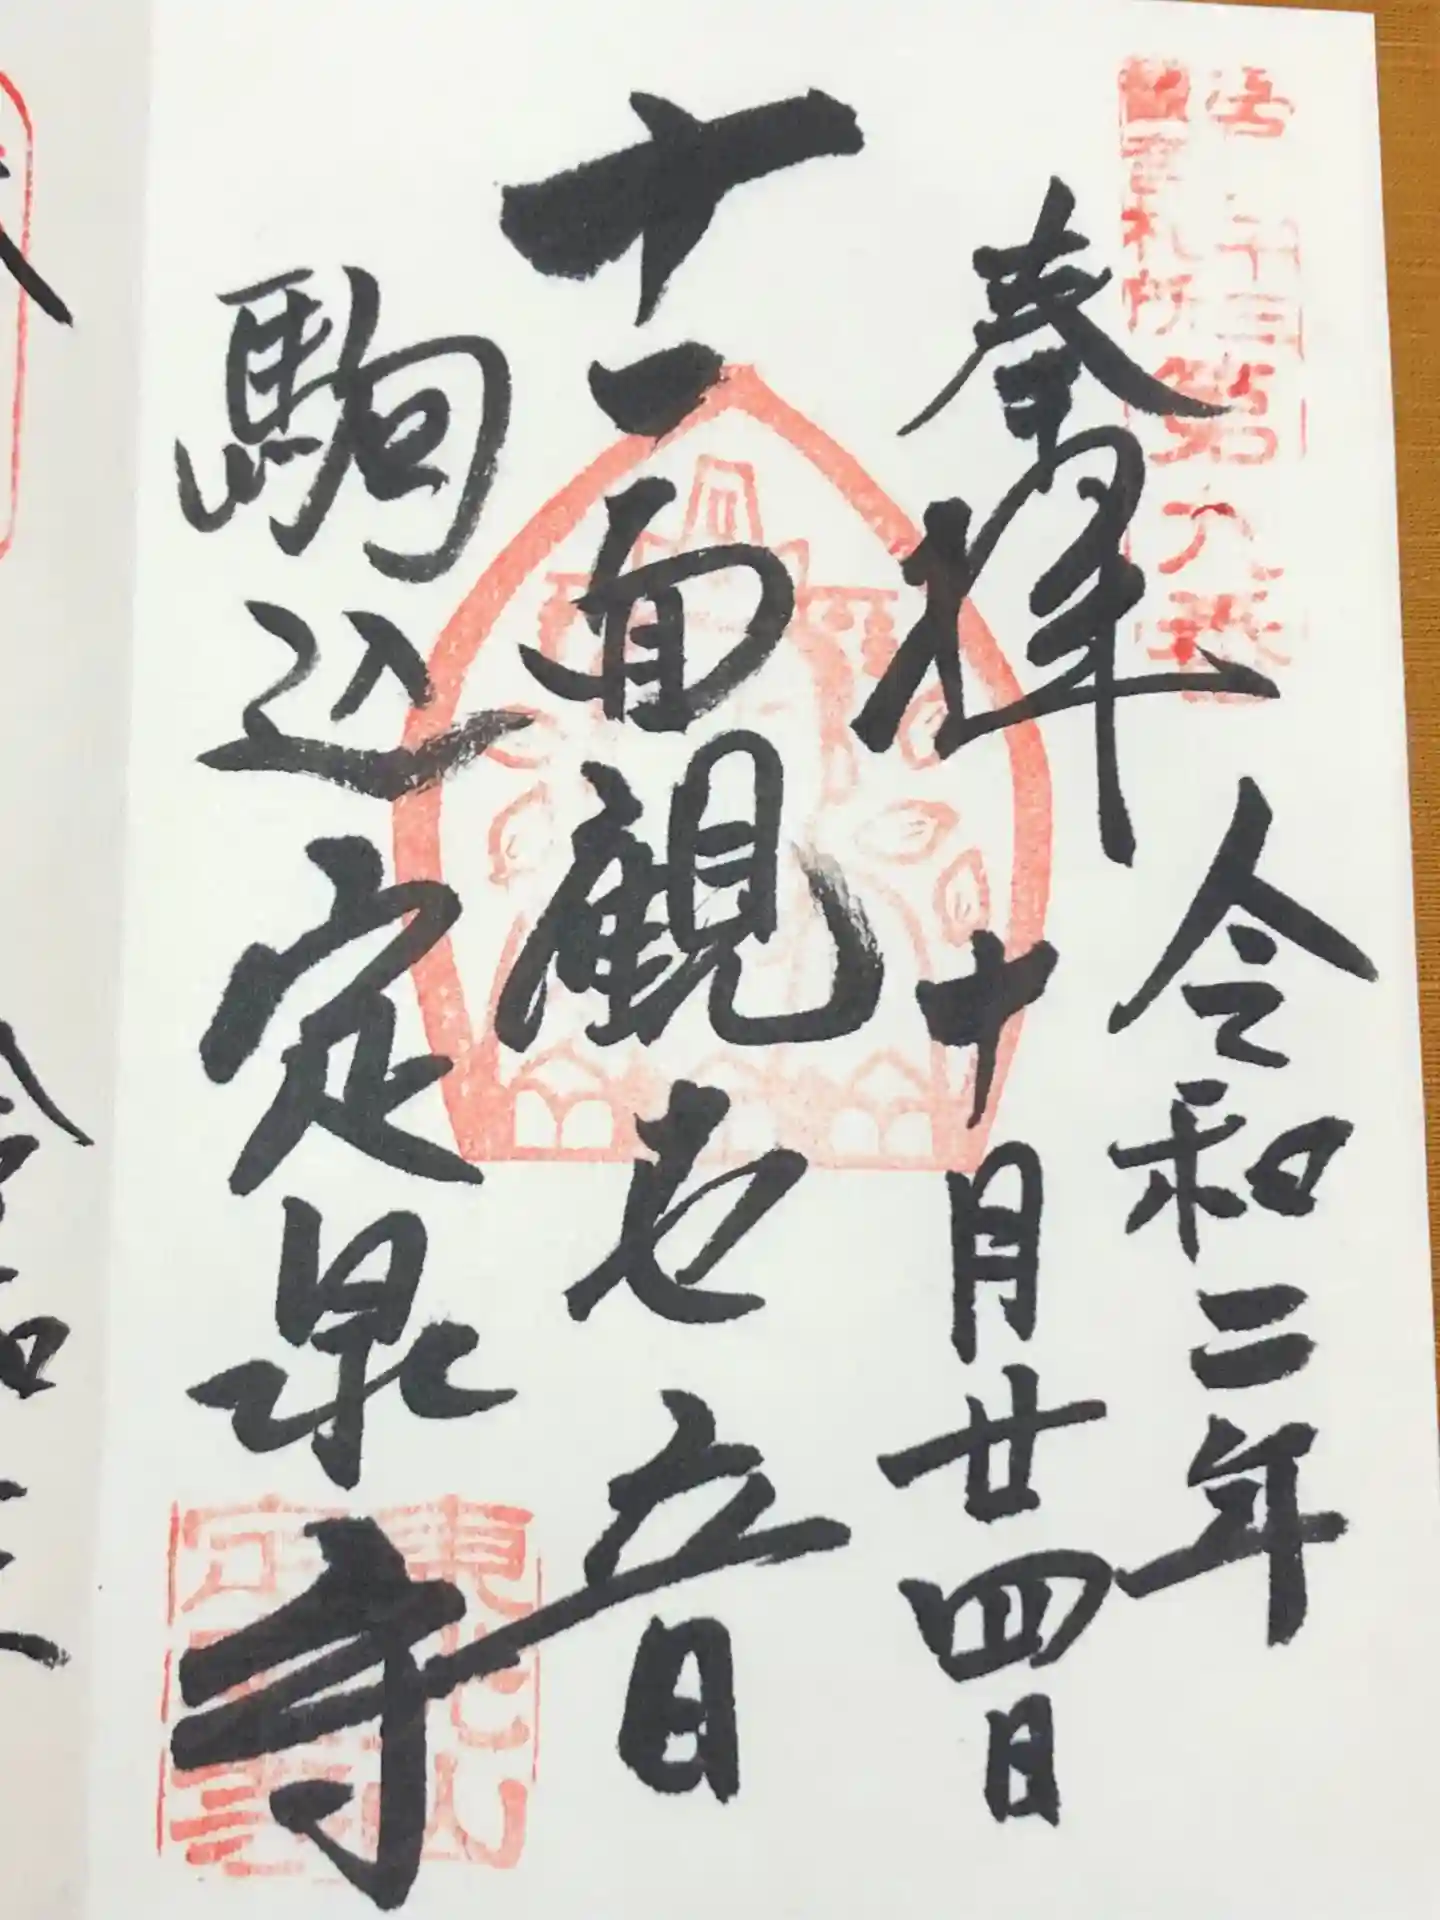 奉拝
令和二年
十月廿四日
十一面観世音
駒込定泉寺
三十三
観音札所
第九番